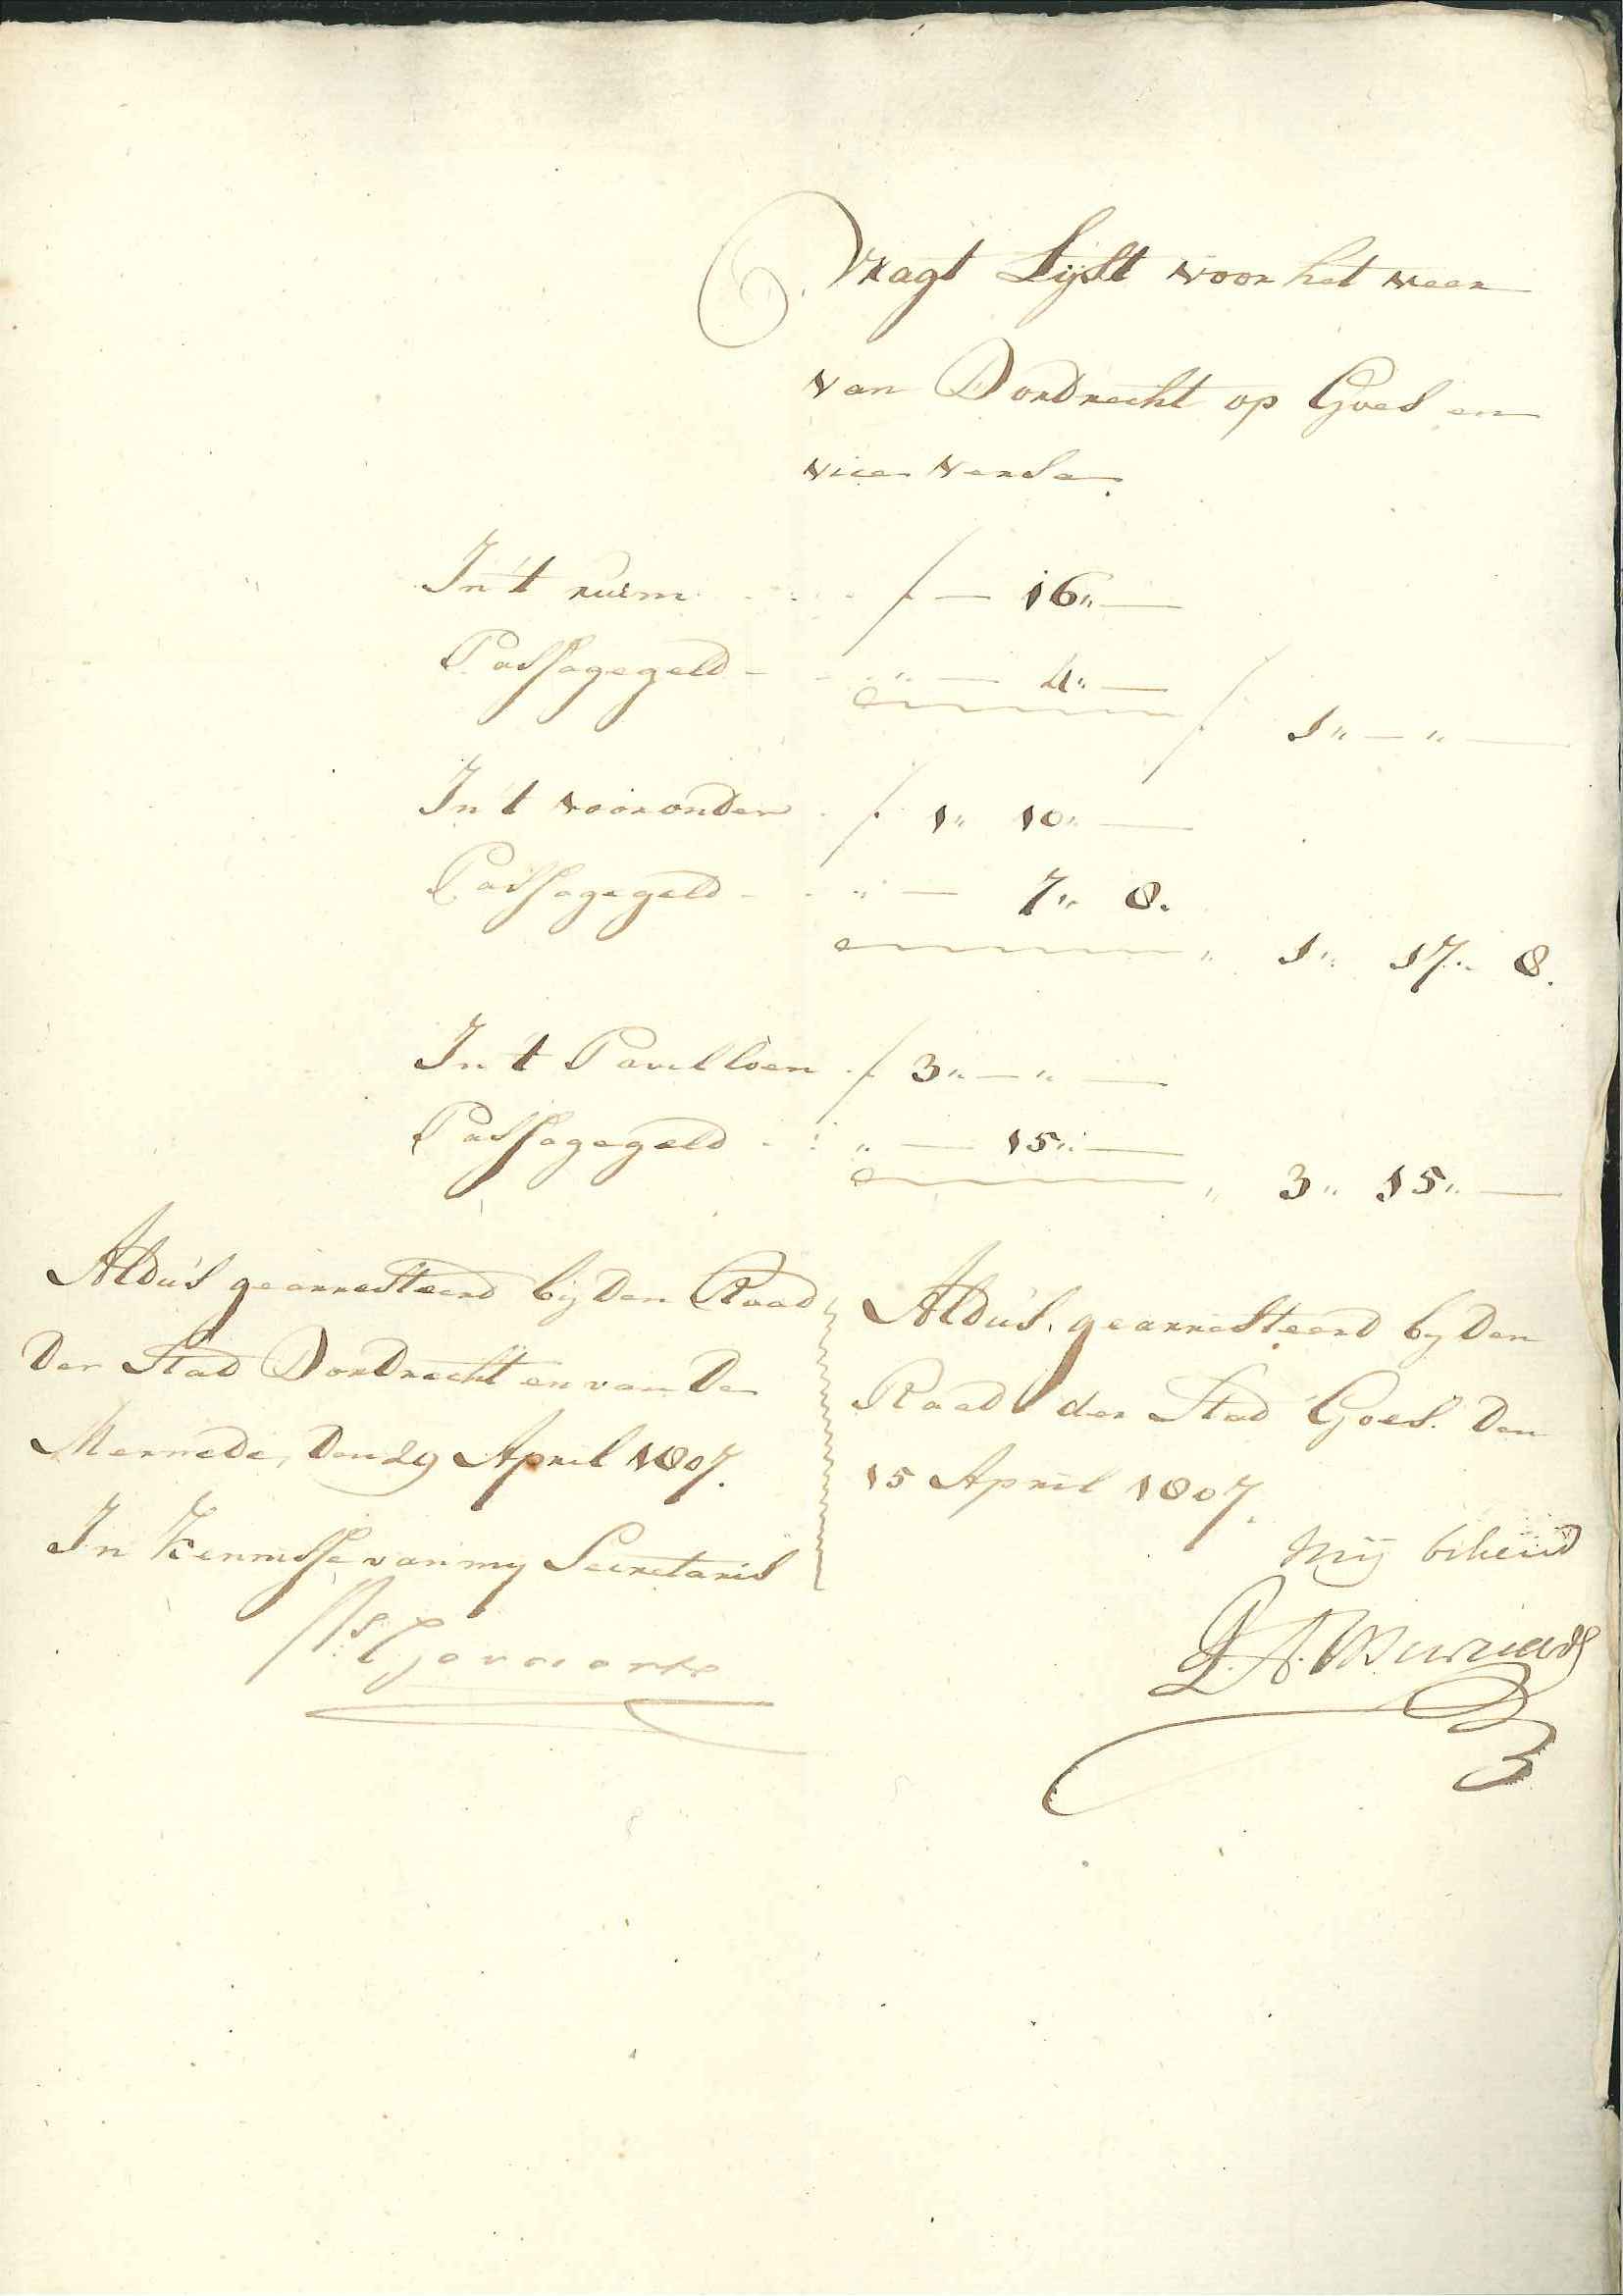 Vragt Lijst voor het veer
van Dordrecht op Goes en
vice versa.
In 't ruim . . . . ƒ — 16„ —
Passagegeld - - „ — 4„ — ƒ 1„ — „ —
In 't vooronder . ƒ 1„ 10„ —
Passagegeld - - „ — 7„ 8.
„ 1„ 17„ 8.
In 't Pavilloen . ƒ 3„ — „ —
Passagegeld - : „ — 15„ —
„ 3„ 15„ —
Aldus gearresteerd bij den Raad
der Stad Dordrecht en van de
Merwede, den 29 April 1807.
In Kennisse van my Secretaris
Ps. Govaarts
Aldus gearresteerd by den
Raad der Stad Goes. den
15 April 1807.
Mij bekend